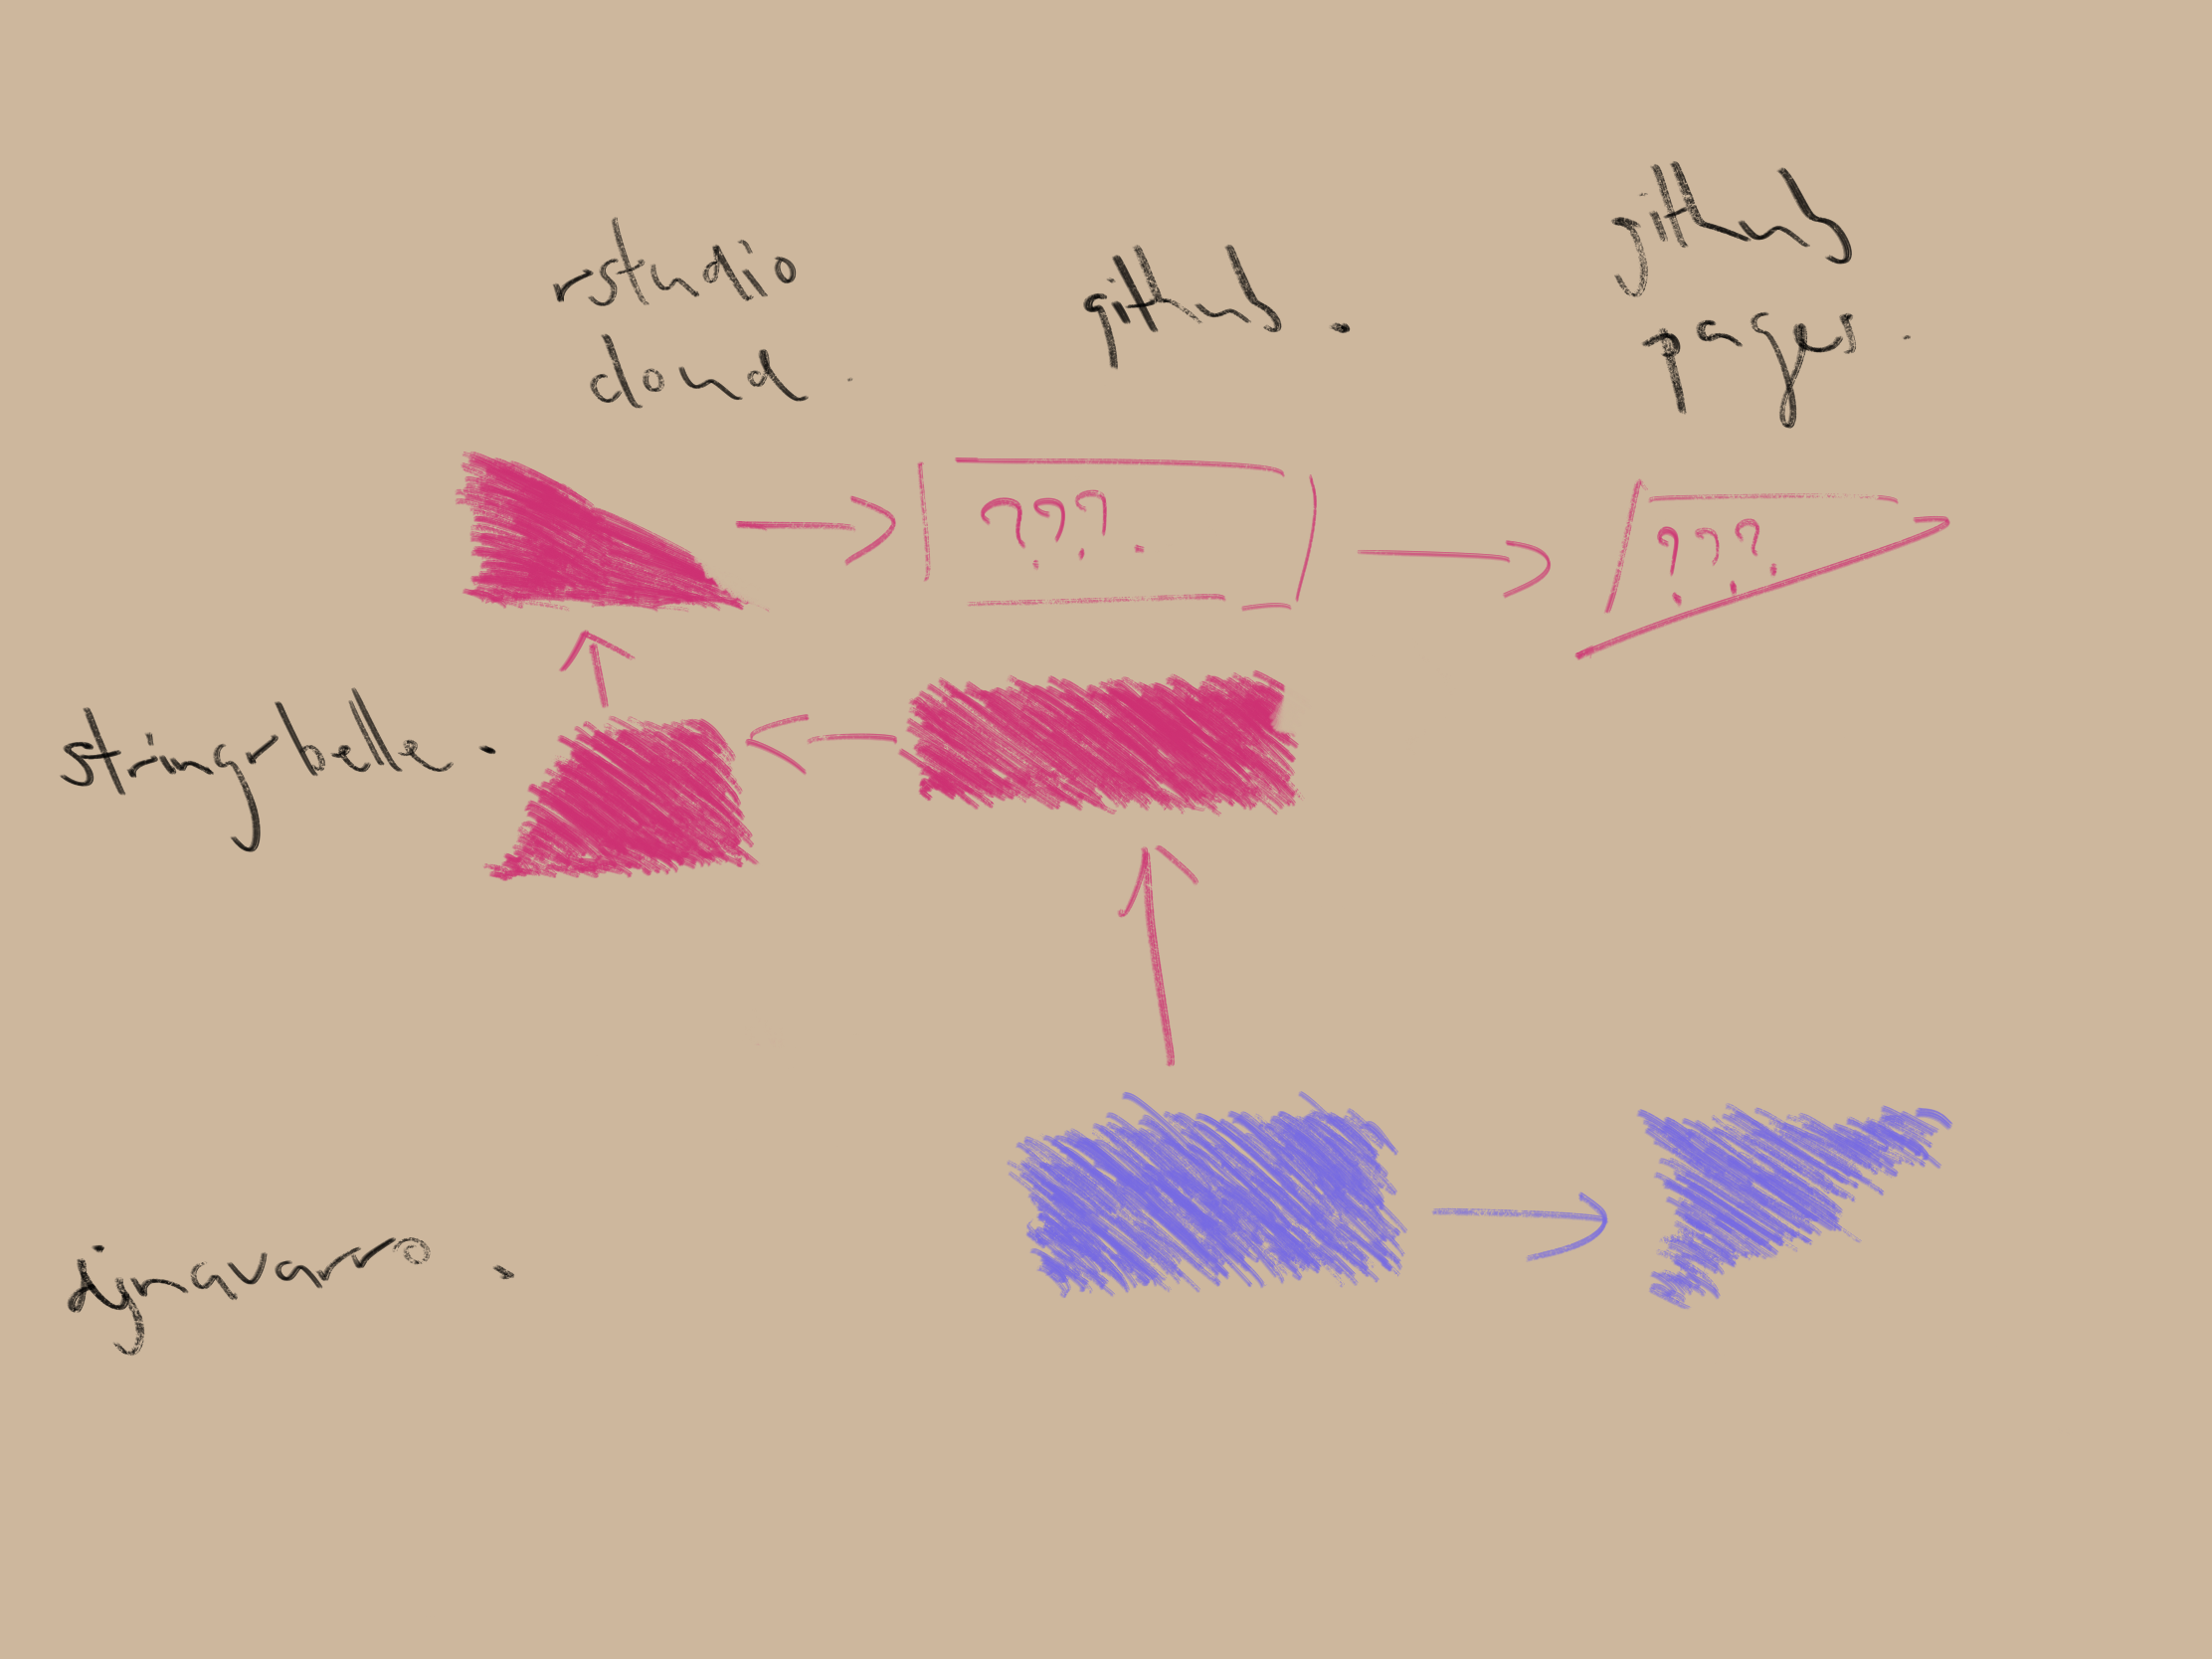 rstudio
cloud.
github.
github
pages.
???.
???
stringr-belle.
djnavarro.